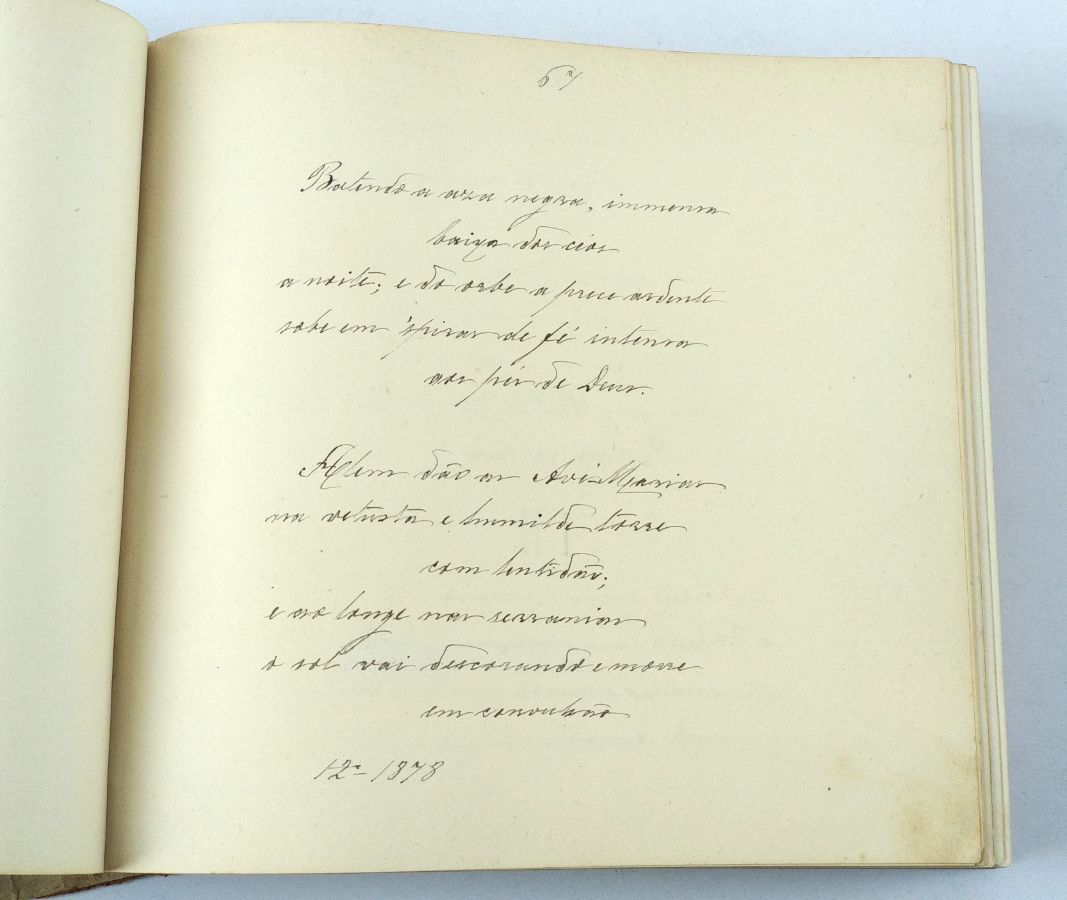 67
Batendo a aza negra, immensa
baixa dos céos
a noite; e do orbe a prece ardente
sobe em 'spiras de fé intensa
aos pés de Deus.
Alem dão as Avé-Marias
na vetusta e humilde torre
com lentidão;
e ao longe nas serranias
o sol vai descorando e morre
em convulsão
12-1878